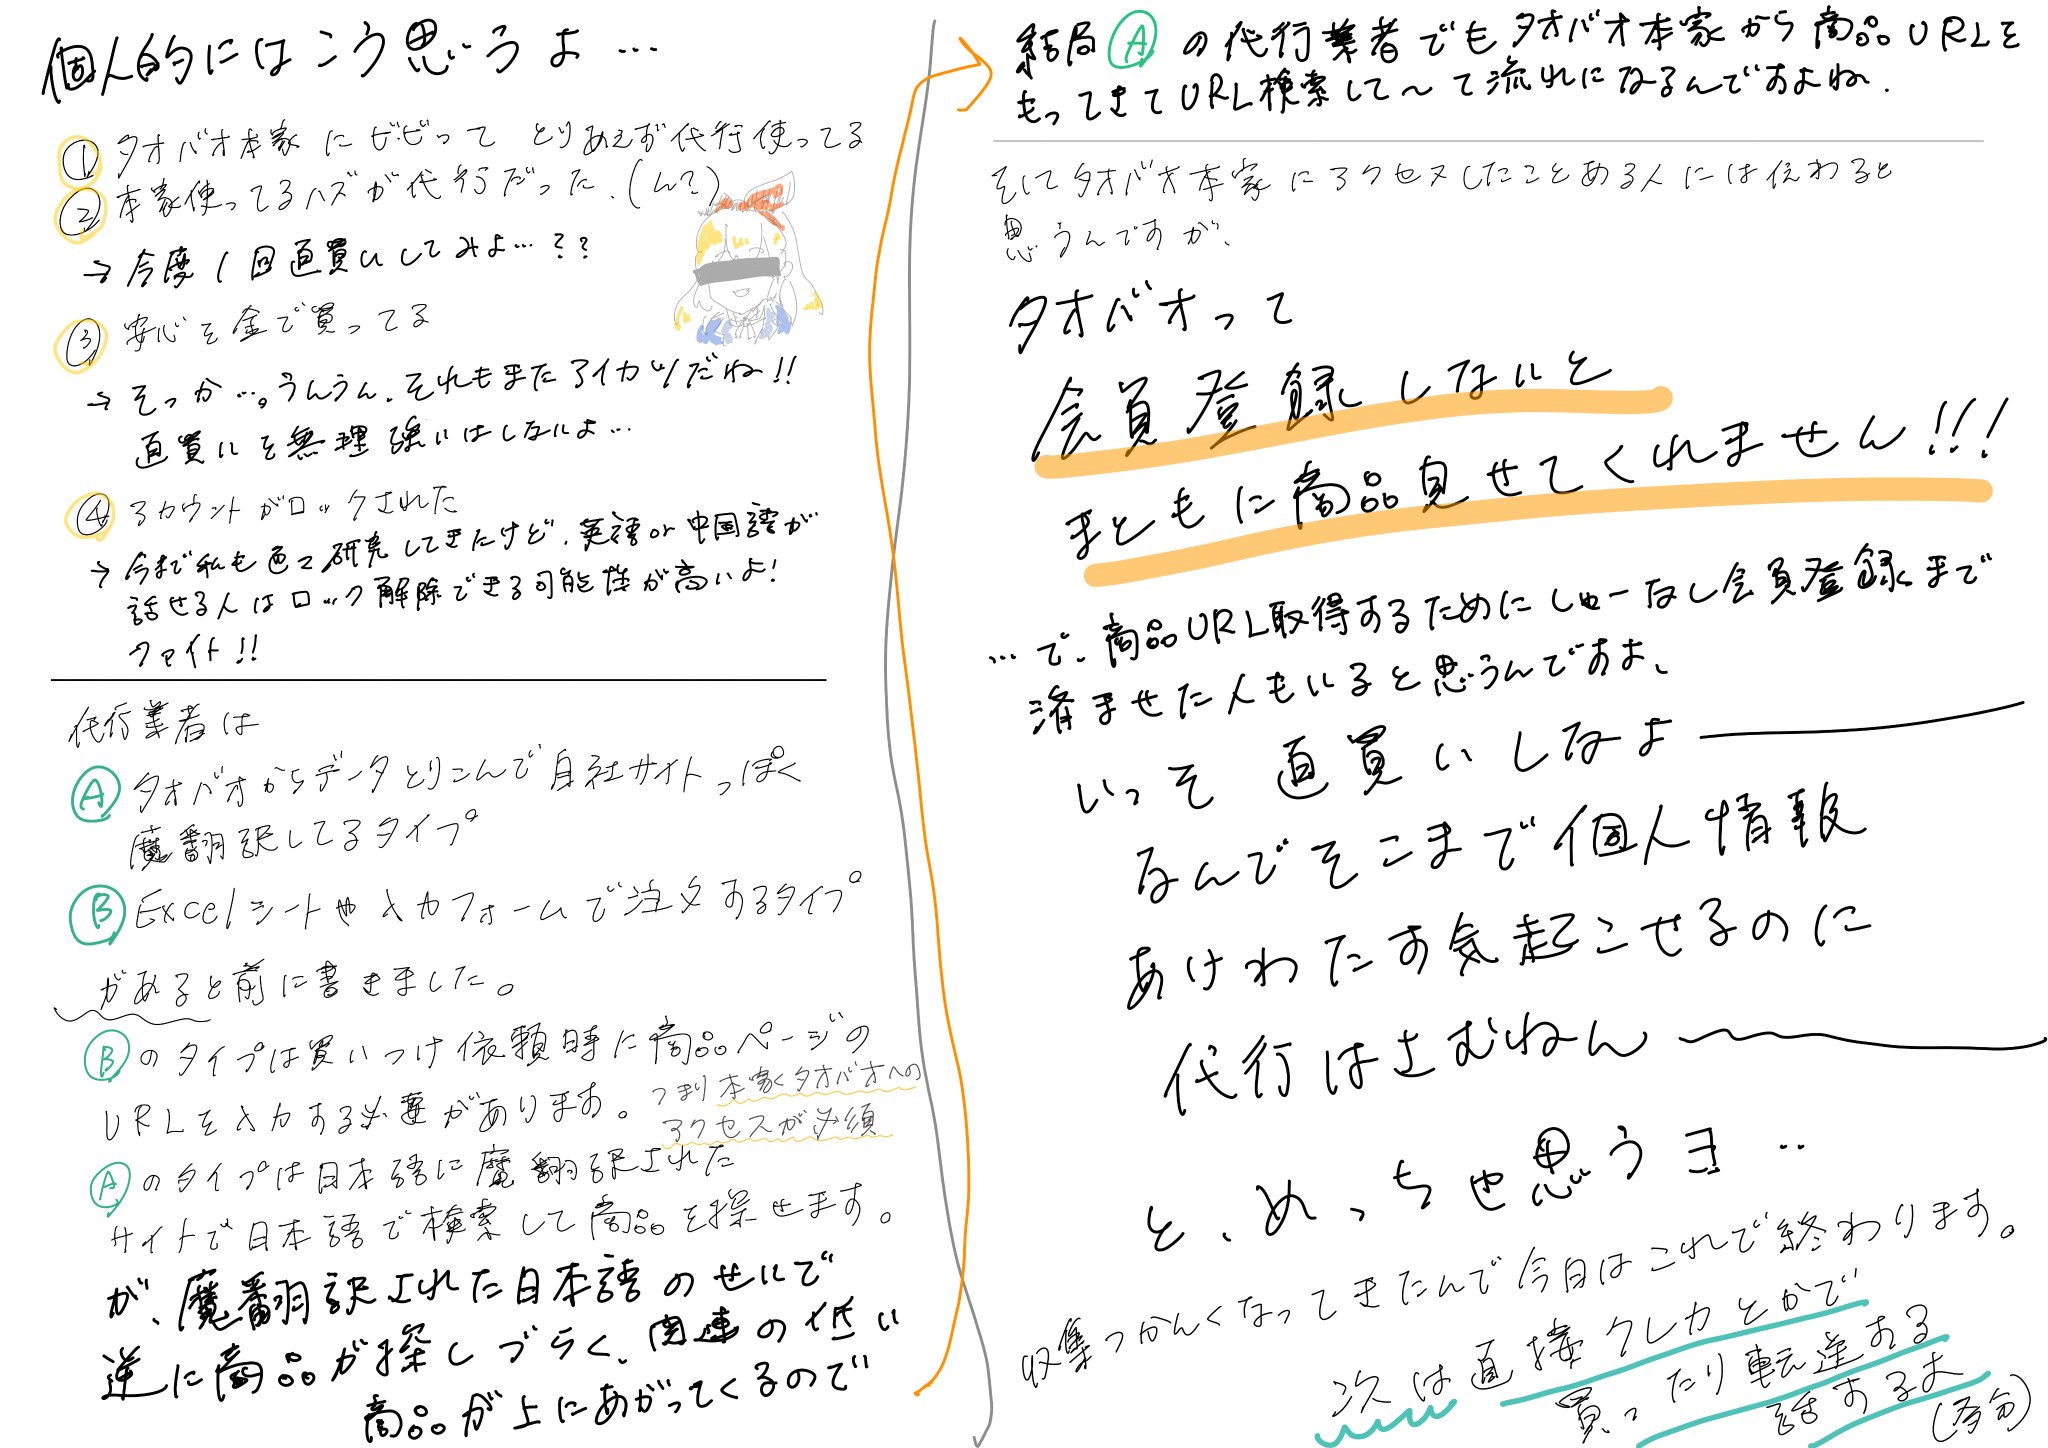 個人的にはこう思うよ…
① タオバオ本家にビビって とりあえず代行使ってる
② 本家使ってるハズが代行だった.(ん?)
→ 今度1回直買いしてみよ…??
③ 安心を金で買ってる
→ そっか…。うんうん、それもまたアイカツだね!!
直買いを無理強いはしないよ…
④ アカウントがロックされた
→ 今まで私も色々研究してきたけど、英語or中国語が
話せる人はロック解除できる可能性が高いよ!
ファイト!!
代行業者は
Ⓐ タオバオからデータとりこんで自社サイトっぽく
魔翻訳してるタイプ
Ⓑ Excelシートや入力フォームで注文するタイプ
があると前に書きました。
Ⓑのタイプは買いつけ依頼時に商品ページの
URLを入力する必要があります。
つまり本家タオバオへの
アクセスが必須
Ⓐのタイプは日本語に魔翻訳された
サイトで日本語で検索して商品を探せます。
が、魔翻訳された日本語のせいで
逆に商品が探しづらく、関連の低い
商品が上にあがってくるので
結局Ⓐの代行業者でもタオバオ本家から商品URLを
もってきてURL検索して〜て流れになるんですよね.
そしてタオバオ本家にアクセスしたことある人には伝わると
思うんですが、
タオバオって
会員登録しないと
まともに商品見せてくれません!!!
…で、商品URL取得するためにしゅーなし会員登録まで
済ませた人もいると思うんですよ、
いっそ直買いしなよ――
なんでそこまで個人情報
あけわたす気起こせるのに
代行はさむねん〜――
と、めっちゃ思うヨ‥
収集つかんくなってきたんで今日はこれで終わります。
次は直接クレカとかで
買ったり転送する
話するよ
(多分)